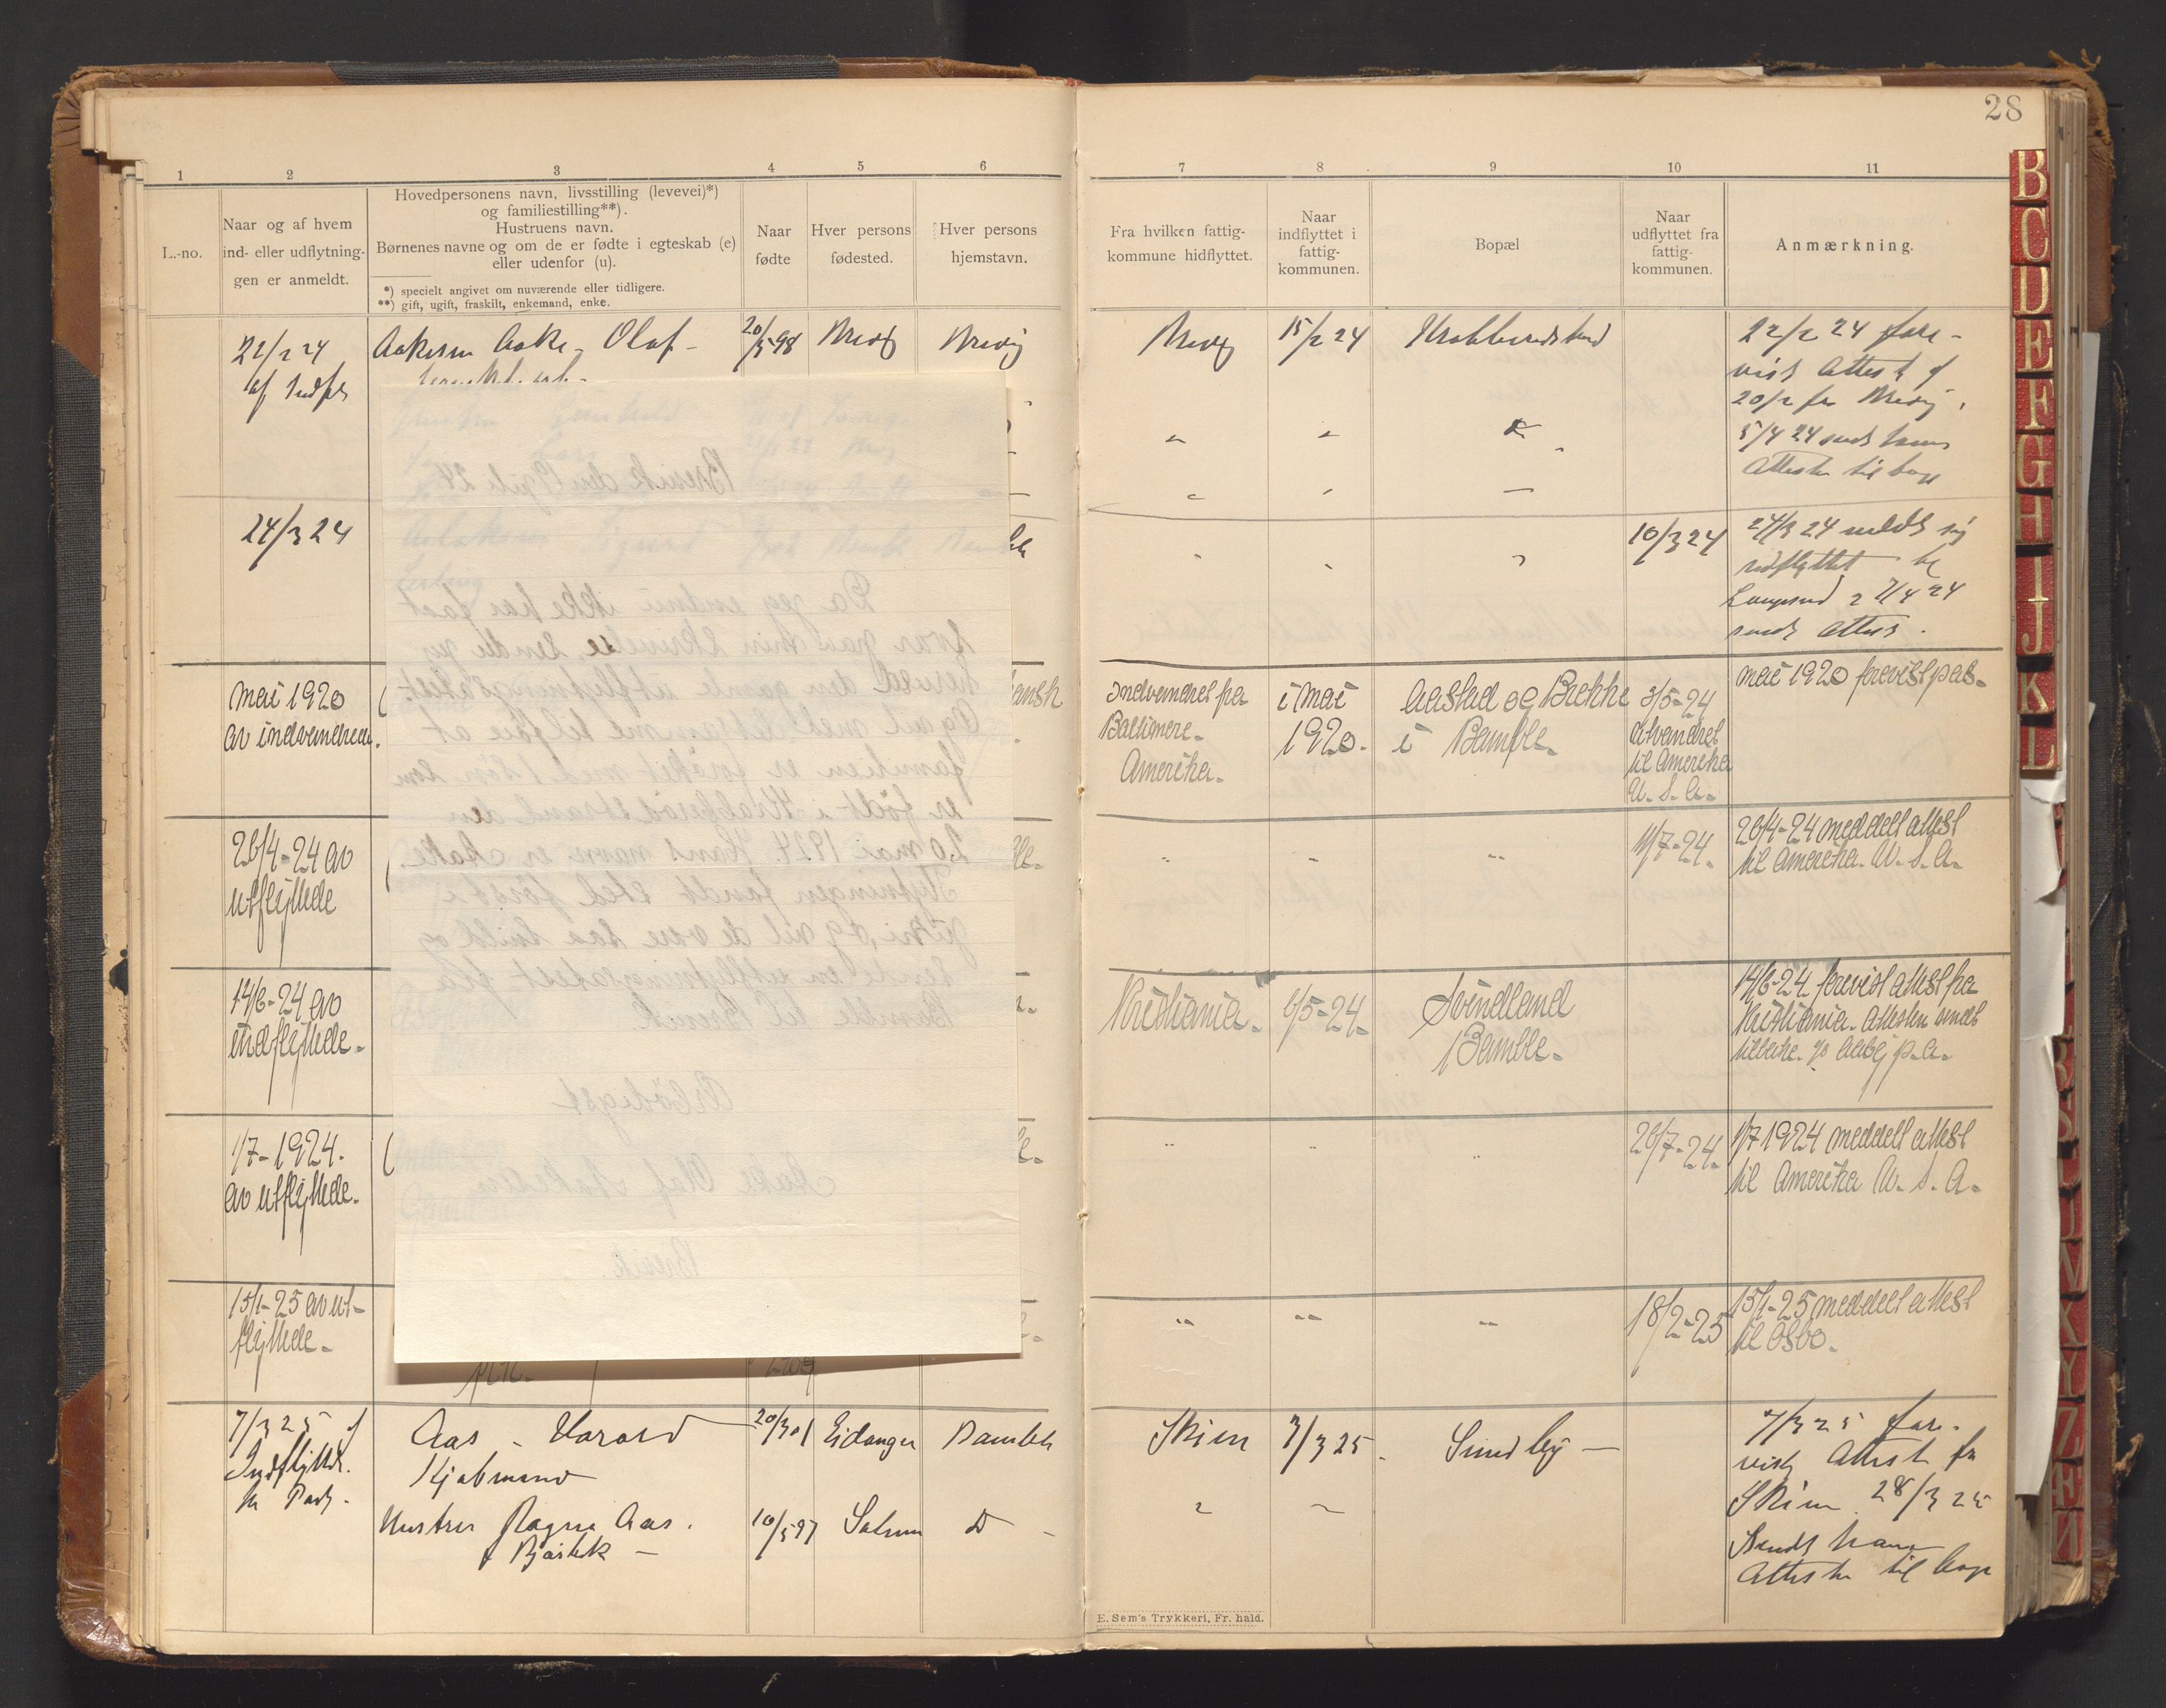 28
1
2
3
4
5
6
7
8
9
10
11
L.-no.
Naar og af hvem
ind- eller udflytnin-
gen er anmeldt.
Hovedpersonens navn, livsstilling (levevei)*)
og familiestilling**).
Hustruens navn.
Børnenes navne og om de er fødte i egteskab (e)
eller udenfor (u).
*) specielt angivet om nuværende eller tidligere.
**) gift, ugift, fraskilt, enkemand, enke.
Naar
fødte
Hver persons
fødested.
Hver persons
hjemstavn.
Fra hvilken fattig-
kommune hidflyttet.
Naar
indflyttet i
fattig-
kommunen.
Bopæl
Naar
udflyttet fra
fattig-
kommunen.
Anmærkning.
22/2 24
Aakesen Aake Olaf
20/5 98
Brevig
Brevig
Brevig
15/2 24
22/2 24 fore-
vist Attest af
20/2 fra Brevig.
5/4 24 sendt hans
Attest tilbage
24/3 24
10/3 24
24/3 24 meldt sig
udflyttet
Langesund 2 7/4 24
sendt Attest.
Mai 1920
av indvandrede.
Indvandret fra
Baltimore.
Amerika.
i Mai
1920.
Aastad og Brekke
i Bamble.
3/5-24
Utvandret
til Amerika
U.S.A.
Mai 1920 forevist pas.
26/4-24 av
utflyttede
11/7-24.
26/4-24 meddelt attest
til Amerika. U.S.A.
14/6-24 av
indflyttede.
Kristiania.
6/5-24.
Svindland
Bamble.
14/6-24. forevist attest fra
Kristiania. Attesten sendt
tilbake.
1/7-1924.
av utflyttede.
26/7-24.
1/7 1924 meddelt attest
til Amerika U.S.A.
15/1-25 av ut-
flyttede.
18/2-25
15/1-25 meddelt attest
til Oslo.
Brevik den 19 juli 24
Da jeg endnu ikke har faat
svar paa min skrivelse, sender jeg
herved den gamle utflytningsattest.
Og vil med det samme tilføie at
familien er forøket med 1 søn som
er født i Krabberødstrand den
20 mai 1924. Hans navn er Aake.
Flytningen fandt sted først i
juni, og vil de være saa snild og
sende en utflytningsattest fra
Bamble til Brevik.
Ærbødigst
Aake Olaf Aakesen
Brevik.
7/3 25 af
Indflyttede
Aas - Harald
20/3 01
Eidanger
Bamble
Skien
3/3 25
Sundby
7/3 25 fore-
vist Attest fra
Skien 28/3 25
Sendt ham
Attesten tilbage
Hustru Ragna Aas.
10/5 97
Solum
D
E. Sem's Trykkeri, Fr. hald.
B
C
D
E
F
G
H
I
J
K
L